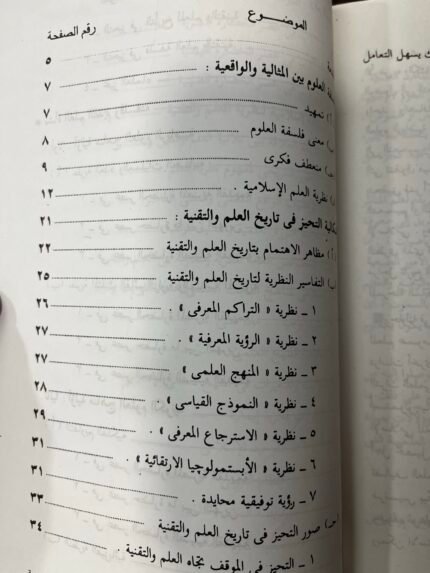 ك يسهل التعامل
الموضـــوع رقم الصفحة
٥
العلوم بين المثالية والواقعية : ٧
تمهيد ٧
معنى فلسفة العلوم ٨
منعطف فكرى ٩
نظرية العلم الإسلامية . ١٢
التحيز فى تاريخ العلم والتقنية : ٢١
مظاهر الاهتمام بتاريخ العلم والتقنية ٢٢
التفاسير النظرية لتاريخ العلم والتقنية ٢٥
١ ـ نظرية « التراكم المعرفى » . ٢٦
٢ ـ نظرية « الرؤية المعرفية » . ٢٧
٣ ـ نظرية « المنهج العلمى » ٢٧
٤ ـ نظرية « النموذج القياسى » ٢٨
٥ ـ نظرية « الاسترجاع المعرفى » . ٢٩
٦ ـ نظرية « الأبستمولوچيا الارتقائية » . ٣١
٧ ـ رؤية توفيقية محايدة . ٣١
صور التحيز فى تاريخ العلم والتقنية ٣٣
١ ـ التحيز فى الموقف تجاه العلم والتقنية . ٣٤